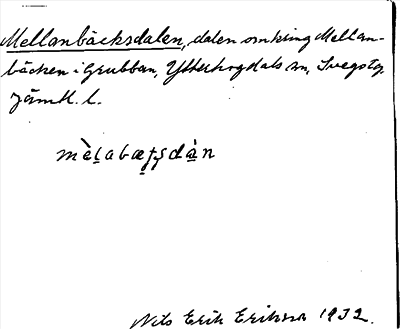 Mellanbäcksdalen, dalen omkring Mellan-
bäcken i Grubban, Ytterhogdals sn, Svegs tg,
Jämtl. l.
mèl̠abæt̠s̠dà̠n
Nils Erik Erikson 1932.